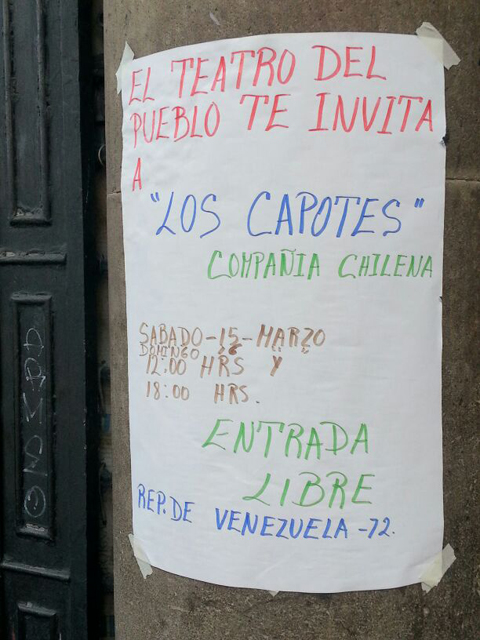 EL TEATRO DEL
PUEBLO TE INVITA
A
"LOS CAPOTES"
COMPAÑIA CHILENA
SABADO-15-MARZO
DOMINGO 16 "
12:00 HRS Y
18:00 HRS.
ENTRADA
LIBRE
REP. DE VENEZUELA -72.